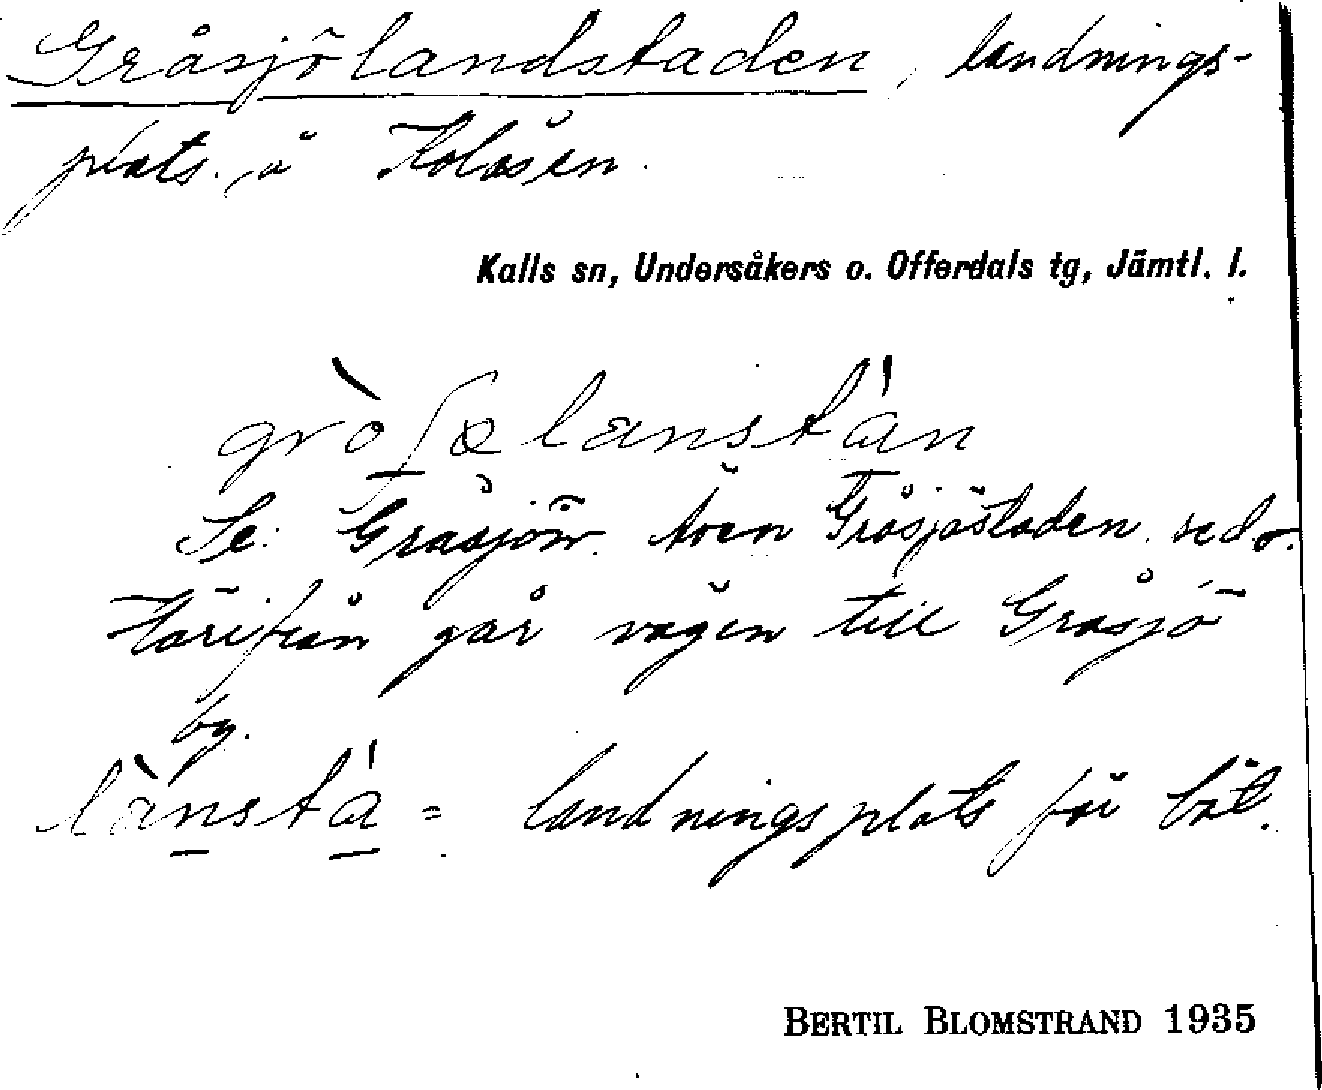 Gråsjölandstaden, landnings-
plats å Kolåsen.
Kalls sn, Undersåkers o. Offerdals tg, Jämtl. l.
gròʃølanstán
Se: Gråsjön. även Gråsjöstaden
Härifrån går vägen till Gråsjö
by.
lànstá = landningsplats för båt.
BERTIL BLOMSTRAND 1935